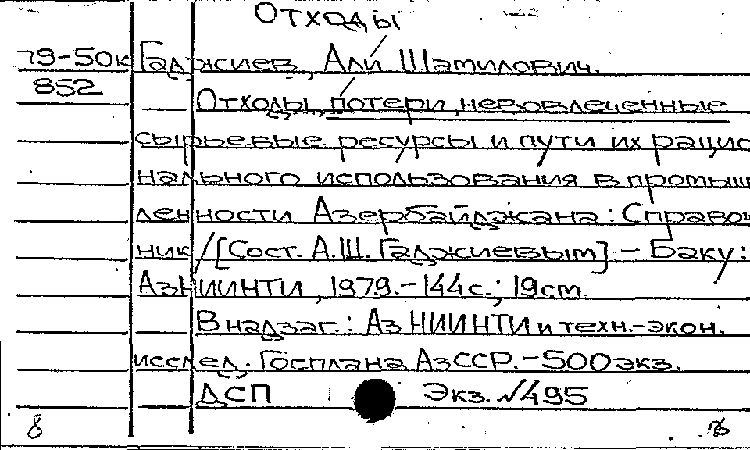 Отходы
79-50к Гаджиев, Али Шамилович.
852
Отходы, потери, невовлеченные
сырьевые ресурсы и пути их рацио
нального использования в промыш
ленности Азербайджана: Справоч
ник / [Сост. А.Ш. Гаджиевым] – Баку:
АзНИИНТИ, 1979.-144с.; 19см.
В надзаг.: АзНИИНТИ и техн.-экон.
исслед. Госплана АзССР. – 500 экз.
ДСП Экз. №495
8